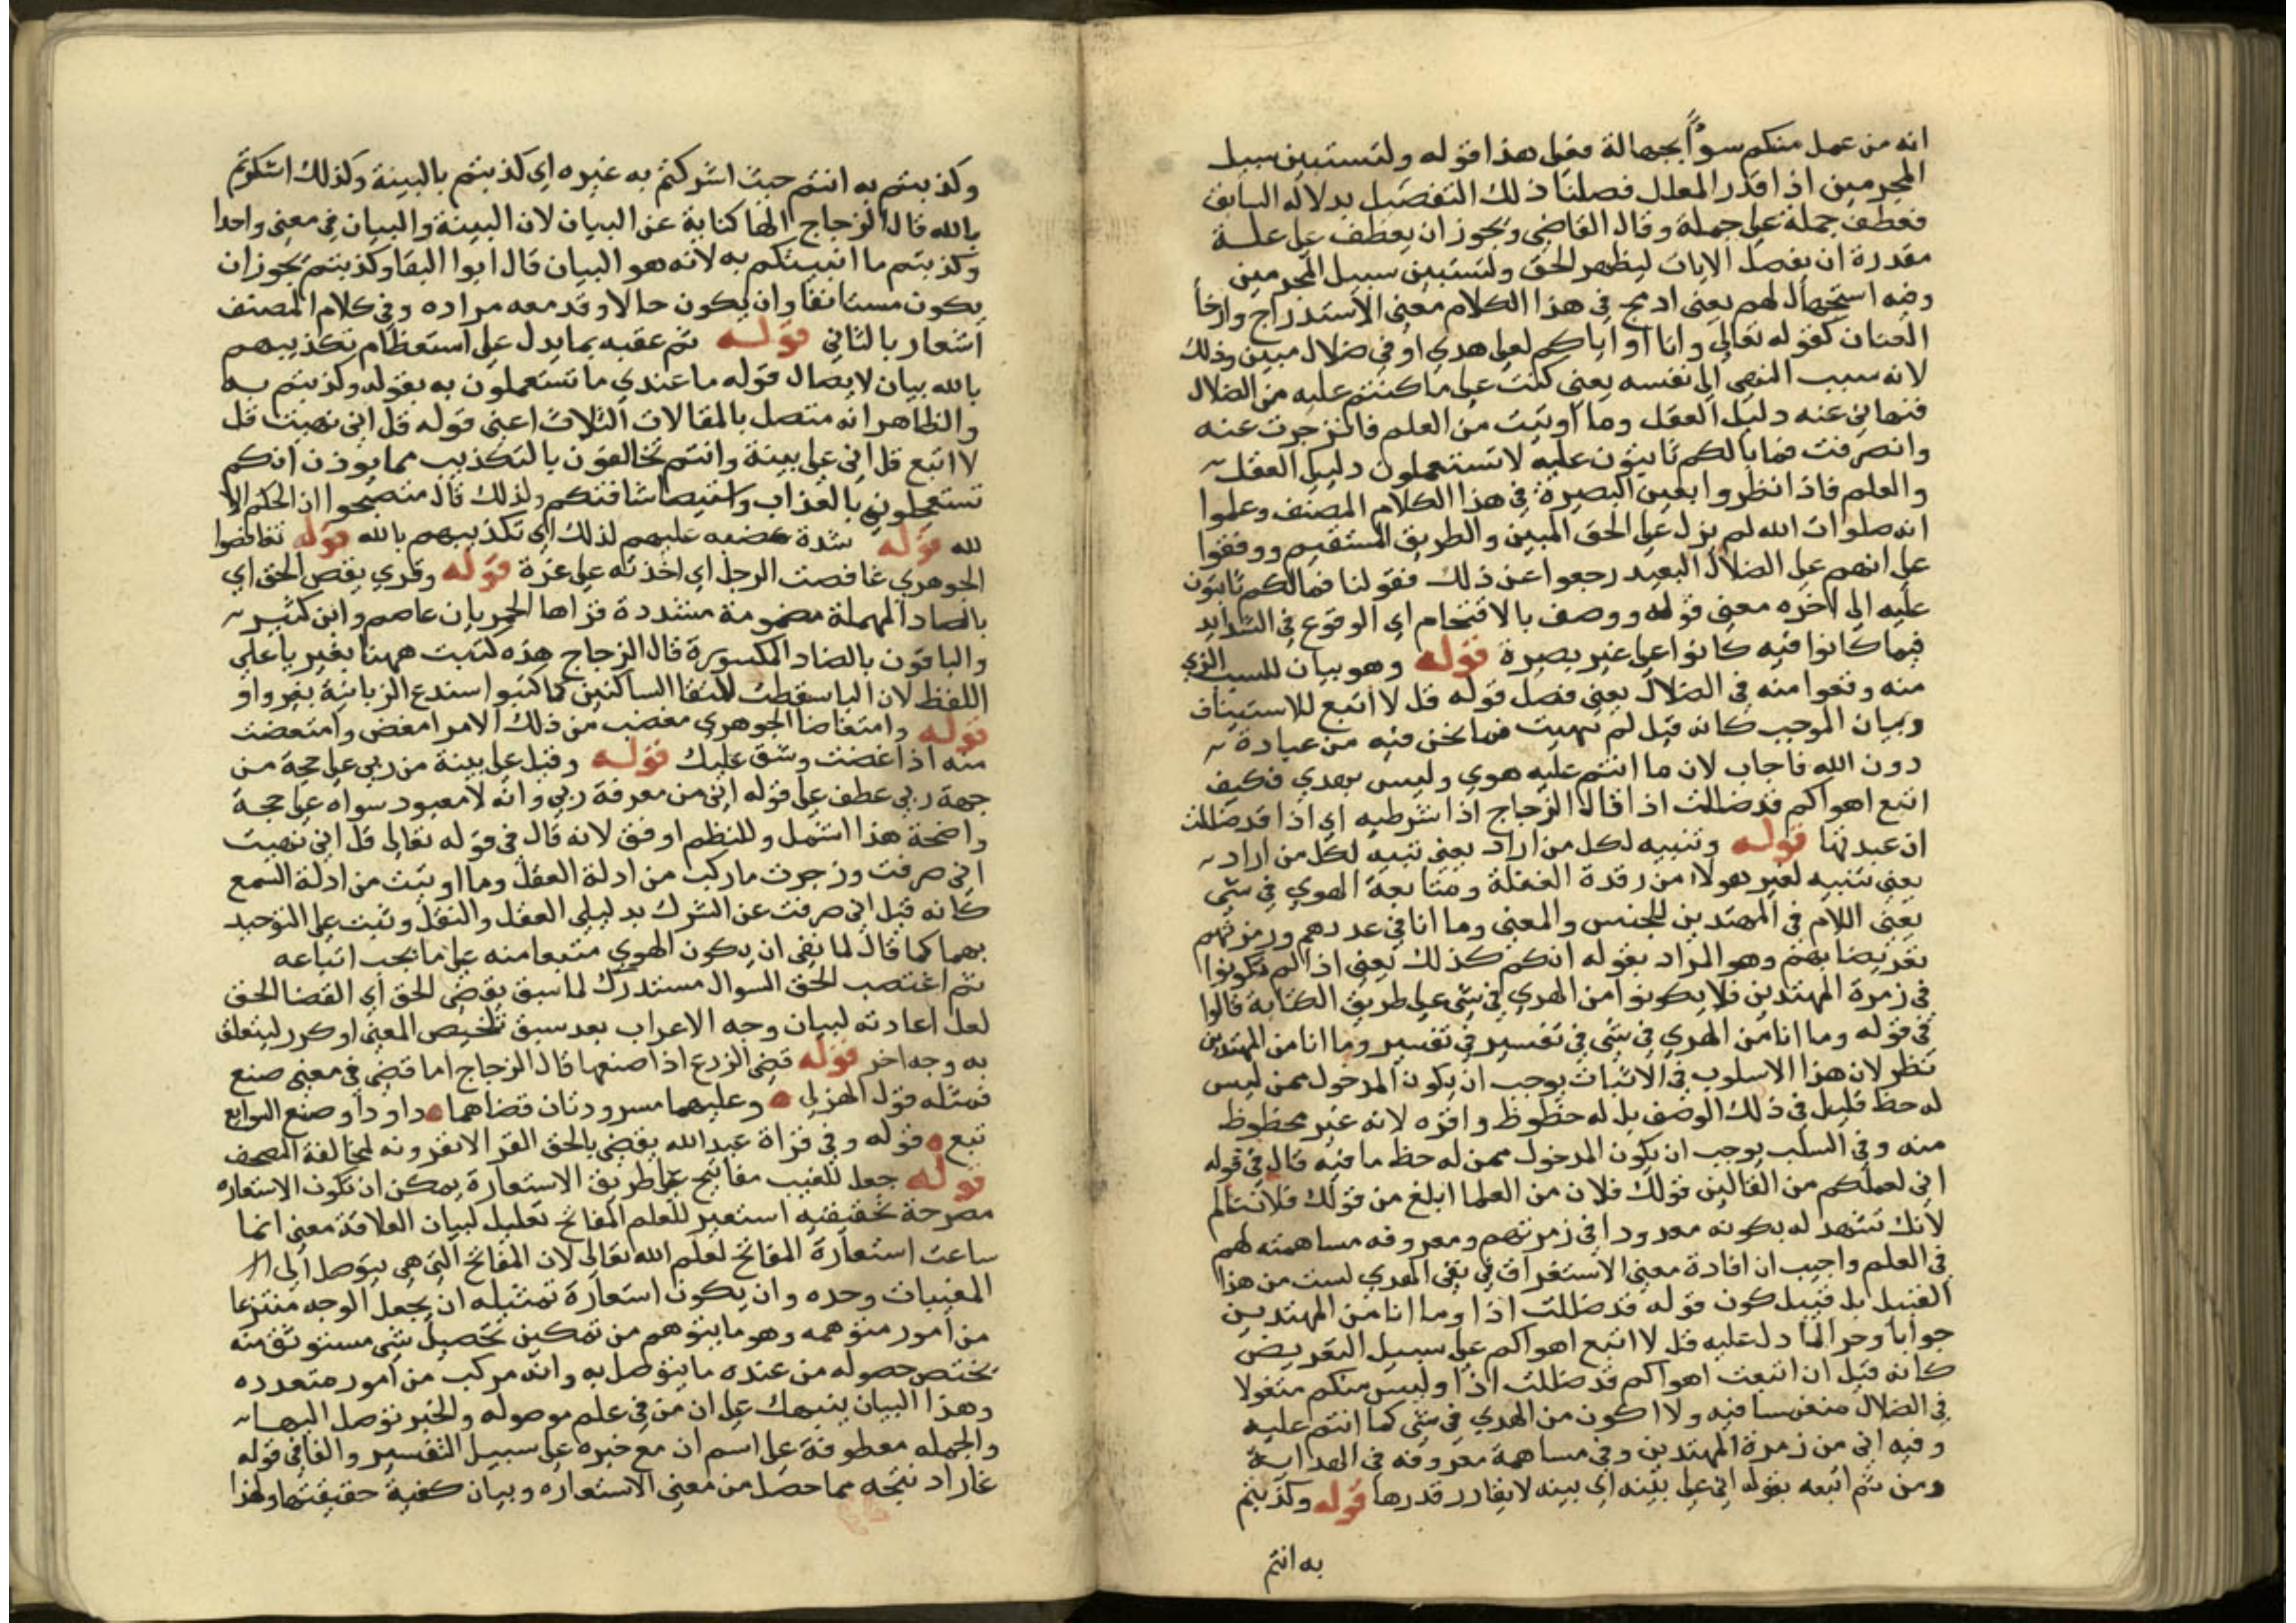 انه من عمل منكم سوًا بجهالة فعلى هذا قوله ولتستبين سبيل
المجرمين اذا قدر المعلل فصلنا ذلك التفصيل بدلالة السابق
فعطف جملة على جملة وقال القاضى ويجوز ان يعطف على علـة
مقدرة ان نفصل الايات ليظهر الحق ولتستبين سبيل المجرمين
وفيه استجهال لهم يعنى ادمج فى هذا الكلام معنى الاستدراج وارخا
العنان كقوله تعالى وانا او اياكم لعلى هدى او فى ضلال مبين وذلك
لانه سبب النهى الى نفسه يعنى كنت على ما كنتم عليه من الضلال
فنهانى عنه دليل العقل وما اوتيت من العلم فانزجرت عنه
وانصرفت فما بالكم ثابتون عليه لا تستعملون دليل العقل
والعلم فاذا انظروا بعين البصيرة فى هذا الكلام المصنف وعلموا
انه صلوات الله لم يزل على الحق المبين والطريق المستقيم ووقفوا
على انهم على الضلال البعيد رجعوا عن ذلك فقولنا فما لكم ثابتون
عليه الى اخره معنى قوله ووصف بالاقتحام اى الوقوع فى الشدايد
فيما كانوا فيه كانوا على غير بصيرة قوله وهو بيان للسبب الذي
منه وقعوا منه فى الضلال يعنى فصل قوله قل لا اتبع للاستيناف
وبيان الموجب كانه قيل لم نهيت فيما نحن فيه من عبادة
دون الله فاجاب لان ما انتم عليه هوى وليس بهدى فكيف
اتبع اهواكم قد ضللت اذا قال الزجاج اذا شرطيه اى اذا قد ضللت
ان عبدتها قوله وتنبيه لكل من اراد يعنى تنبيه لكل من اراد
يعنى تنبيه لغير هولا من رقدة الغفلة ومتابعة الهوى فى شى
يعنى اللام فى المهتدين للجنس والمعنى وما انا فى عددهم وزمرتهم
تعريضا بهم وهو المراد بقوله انكم كذلك يعنى اذا لم تكونوا
فى زمرة المهتدين فلا يكونوا من الهدى فى شى على طريق الكناية قالوا
فى قوله وما انا من الهدى فى شى فى تفسير فى تفسير وما انا من المهتدين
نظر لان هذا الاسلوب فى الاثبات يوجب ان يكون المدخول ممن ليس
له حظ قليل فى ذلك الوصف بل له حظوظ وافره لانه غير محظوظ
منه وفى السلب يوجب ان يكون المدخول ممن له حظ ما فيه قال فى قوله
انى لعملكم من القالين قولك فلان من العلما ابلغ من قولك فلان عالم
لانك تشهد له بكونه معدودا فى زمرتهم ومعروفه مساهمته لهم
فى العلم واجيب ان افادة معنى الاستغراق فى نفى الهدى ليست من هذا
القبيل بل قبيل كون قوله قد ضللت اذا وما انا من المهتدين
جوابا وجزا لما دل عليه قل لا اتبع اهواكم على سبيل التعريض
كانه قيل ان اتبعت اهواكم قد ضللت اذا وليس منكم متغولا
فى الضلال منغمسا فيه ولا اكون من الهدى فى شى كما انتم عليه
وفيه انى من زمرة المهتدين وفى مساهمة معروفه فى الهداية
ومن ثم اتبعه بقوله انى على بينه اى بينه لا يقادر قدرها قوله وكذبتم
به انتم
وكذبتم به انتم حيث اشركتم به غيره اى كذبتم بالبينة وكذلك اشكرتم
بالله قال الزجاج الها كناية عن البيان لان البينة والبيان فى معنى واحدا
وكذبتم ما اتيتكم به لانه هو البيان قال ابوا البقا وكذبتم يجوز ان
يكون مستانفا وان يكون حالا وقد معه مراده وفى كلام المصنف
اشعار بالثانى قولـه ثم عقبه بما يدل على استعظام تكذيبهم
بالله بيان لايصال قوله ما عندى ما تستعجلون به بقوله وكذبتم به
والظاهر انه متصل بالمقالات الثلاث اعنى قوله قل انى نهيت قل
لا اتبع قل انى على بينة وانتم تخالفون بالتكذيب مما يوذن انكم
تستعجلون بالعذاب واستيصا شافتكم ولذلك قال متصحوا ان الحكم الا
لله قوله شدة غضبه عليهم لذلك اى تكذيبهم بالله قوله تغافصوا
الجوهرى غافصت الرجل اى اخذته على غرة قوله وقرى يقص الحق اى
بالصاد المهملة مضمومة مشددة قراها الحرميان عاصم وابن كثير
والباقون بالضاد المكسورة قال الزجاج هذه كتبت ههنا بغير يا على
اللفظ لان اليا سقطت لالتقا الساكنين كما كتبوا سندع الزبانية بغير واو
قوله وامتغاضا الجوهرى مغضب من ذلك الامر امغض وامتعضت
منه اذا غضت وشق عليك قولـه وقيل على بينة من ربى على حجة من
جهة ربى عطف على قوله انى من معرفة ربى وانه لا معبود سواه على حجة
واضحة هذا اشمل وللنظم اوفق لانه قال فى قوله تعالى قل انى نهيت
انى صرفت وزجرت ما ركب من ادلة العقل وما اوتيت من ادلة السمع
كانه قيل انى صرفت عن الشرك بدليلى العقل والنقل وثبت على التوحيد
بهما كما قال لما نفى ان يكون الهوى متبعا منه على ما يجب اتباعه
ثم اغتصب الحق السوال مستدرك لما سبق يقضى الحق اى القضا الحق
لعل اعادته لبيان وجه الاعراب بعد سبق تلخيص المعنى او كرر ليتعلق
به وجه اخر قوله قضى الزرع اذا صنعها قال الزجاج اما قضى فى معنى صنع
فمثله قول الهزلى ه وعليهما مسرودتان قضاهما ه داود او صنع السوابغ
تبع ه قوله وفى قراة عبد الله يقضى بالحق القرا لا تقرونه لمخالفة المصحف
قوله جعل للغيب مفاتيح على طريق الاستعارة يمكن ان تكون الاستعاره
مصرحة تحقيقيه استعير للعلم المفاتح تعليل لبيان العلاقة معنى انما
ساعت استعارة المفاتح لعلم الله تعالى لان المفاتح التى هى يتوصل الى
المغيبات وحده وان يكون استعارة تمثيليه ان يجعل الوجه منتزعا
من امور متوهمه وهو ما يتوهم من تمكين تحصيل شى مستوثق منه
يختص حصوله من عنده ما يتوصل به وانه مركب من امور متعدده
وهذا البيان ينبهك على ان من فى علم موصوله والخبر توصل اليها
والجمله معطوفة على اسم ان مع خبره على سبيل التفسير والفا فى قوله
غاراد نتجه مما حصل من معنى الاستعاره وبيان كفية حقيقتها ولهذا